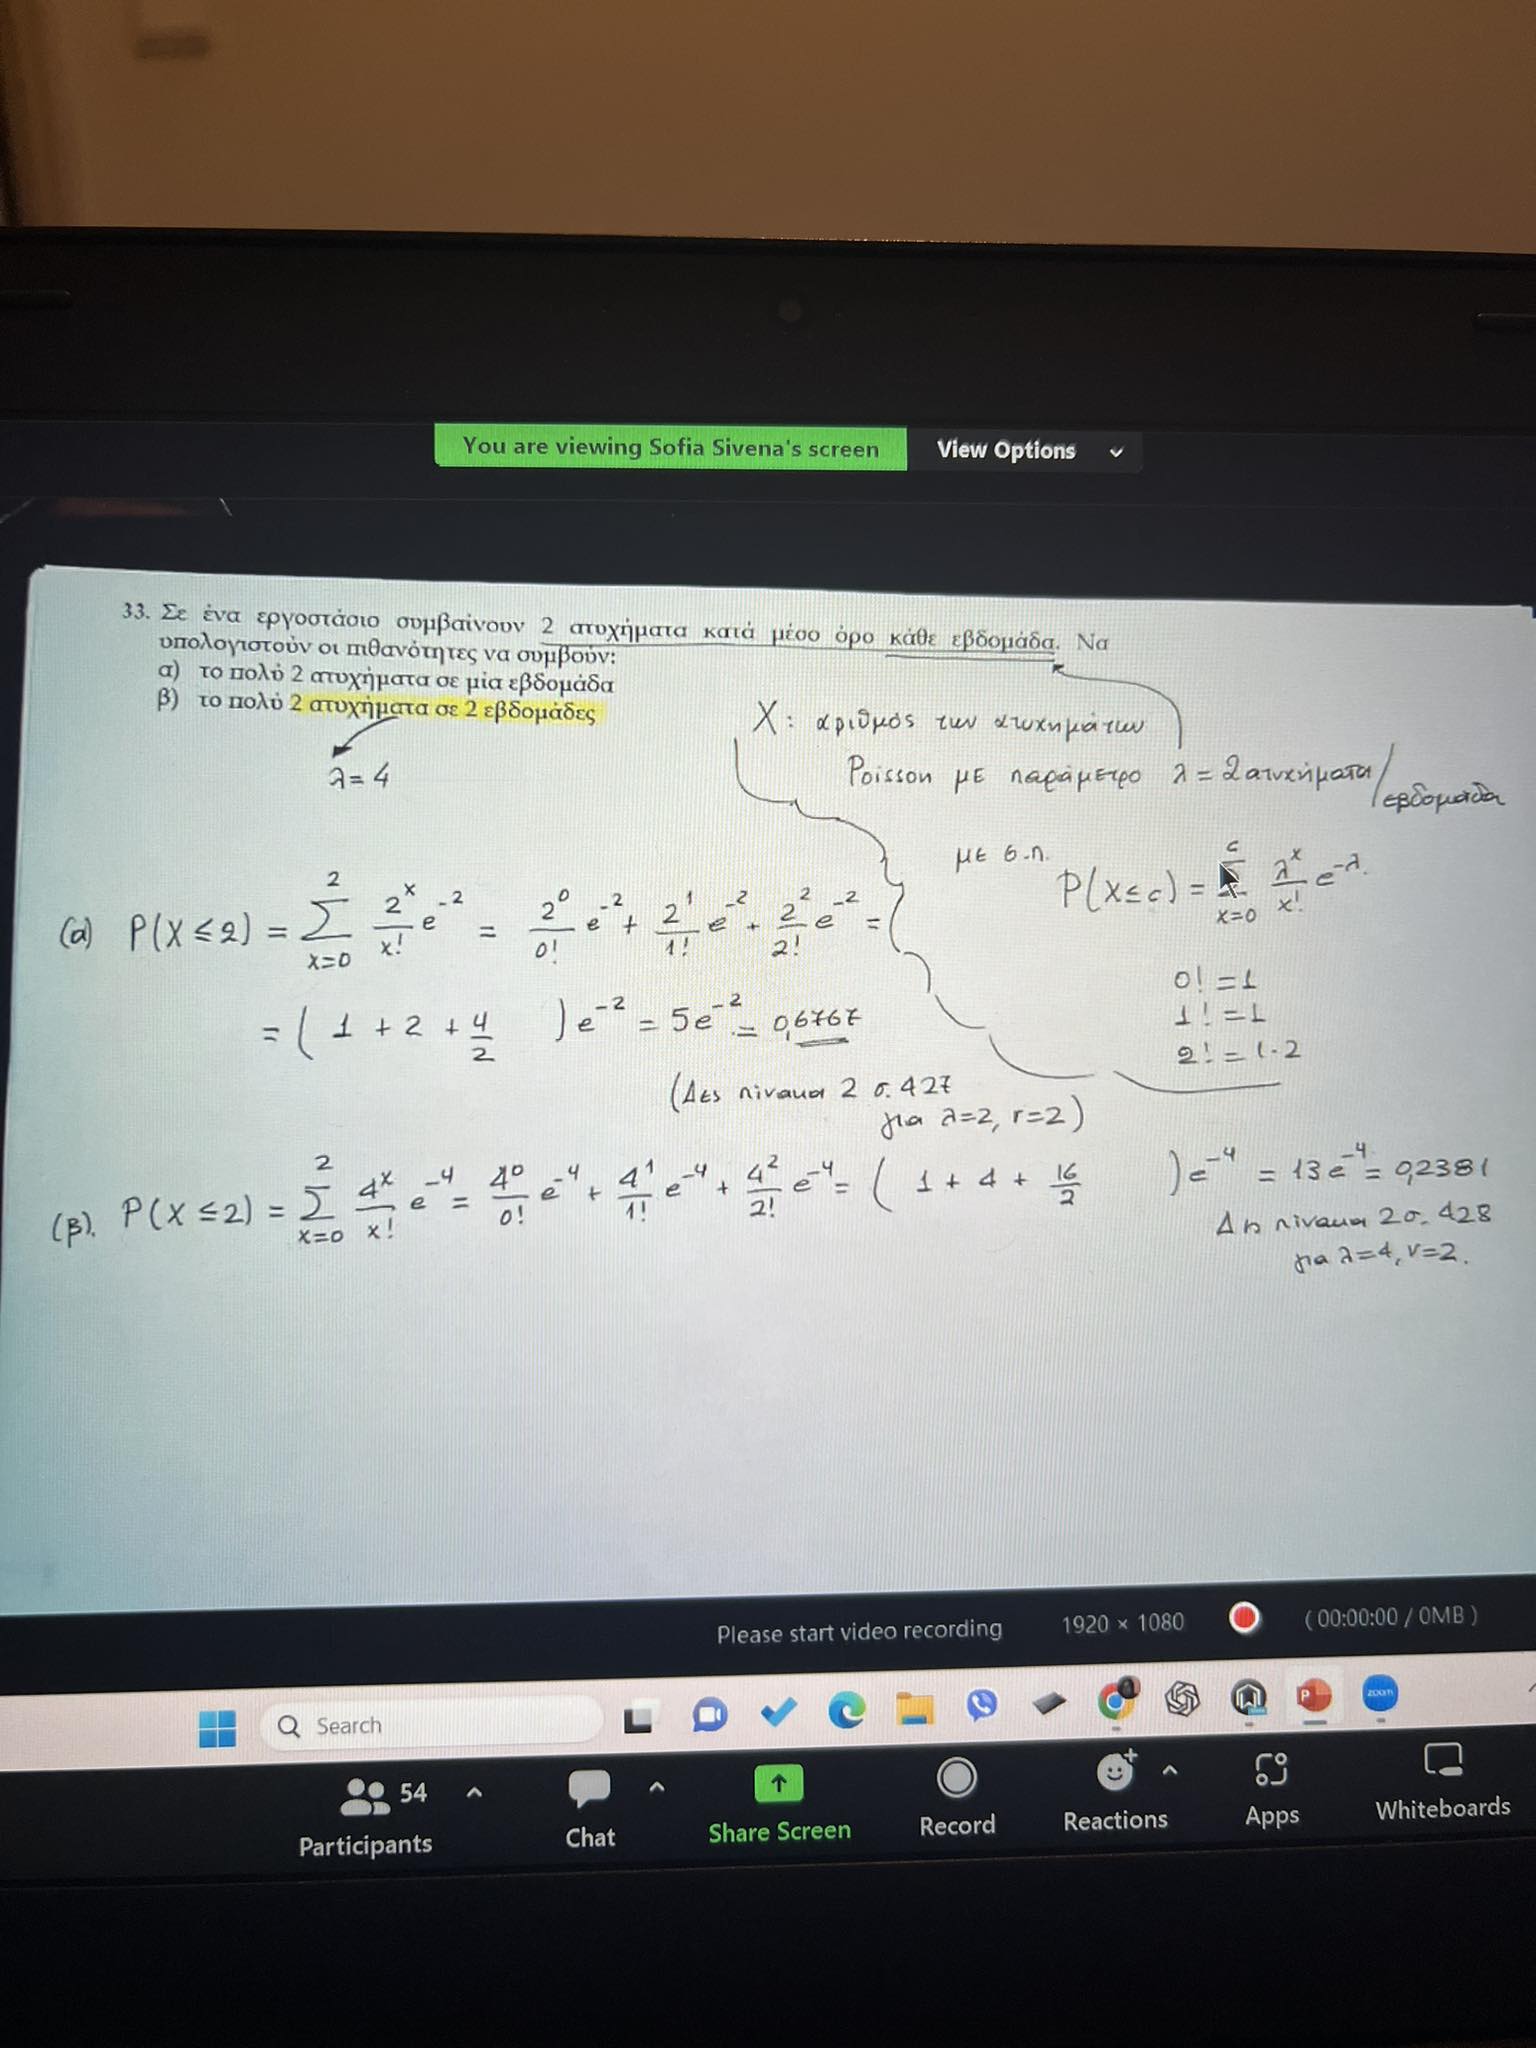 You are viewing Sofia Sivena's screen View Options
33. Σε ένα εργοστάσιο συμβαίνουν 2 ατυχήματα κατά μέσο όρο κάθε εβδομάδα. Να
υπολογιστούν οι πιθανότητες να συμβούν:
α) το πολύ 2 ατυχήματα σε μία εβδομάδα
β) το πολύ 2 ατυχήματα σε 2 εβδομάδες
λ = 4
X: αριθμός των ατυχημάτων
Poisson με παράμετρο λ = 2 ατυχήματα/εβδομάδα
με σ.π. P(X≤c) = Σ_{x=0}^{c} λ^x/x! e^{-λ}.
(α) P(X≤2) = Σ_{x=0}^{2} 2^x/x! e^{-2} = 2^0/0! e^{-2} + 2^1/1! e^{-2} + 2^2/2! e^{-2} =
= (1 + 2 + 4/2) e^{-2} = 5e^{-2} = 0,6767
(Δες πίνακα 2 σ. 427
για λ=2, r=2)
0! = 1
1! = 1
2! = 1·2
(β). P(X≤2) = Σ_{x=0}^{2} 4^x/x! e^{-4} = 4^0/0! e^{-4} + 4^1/1! e^{-4} + 4^2/2! e^{-4} = (1 + 4 + 16/2) e^{-4} = 13e^{-4} = 0,2381
Δες πίνακα 2 σ. 428
για λ=4, r=2.
Please start video recording 1920 × 1080 (00:00:00 / 0MB)
Search
zoom
54
Participants Chat Share Screen Record Reactions Apps Whiteboards